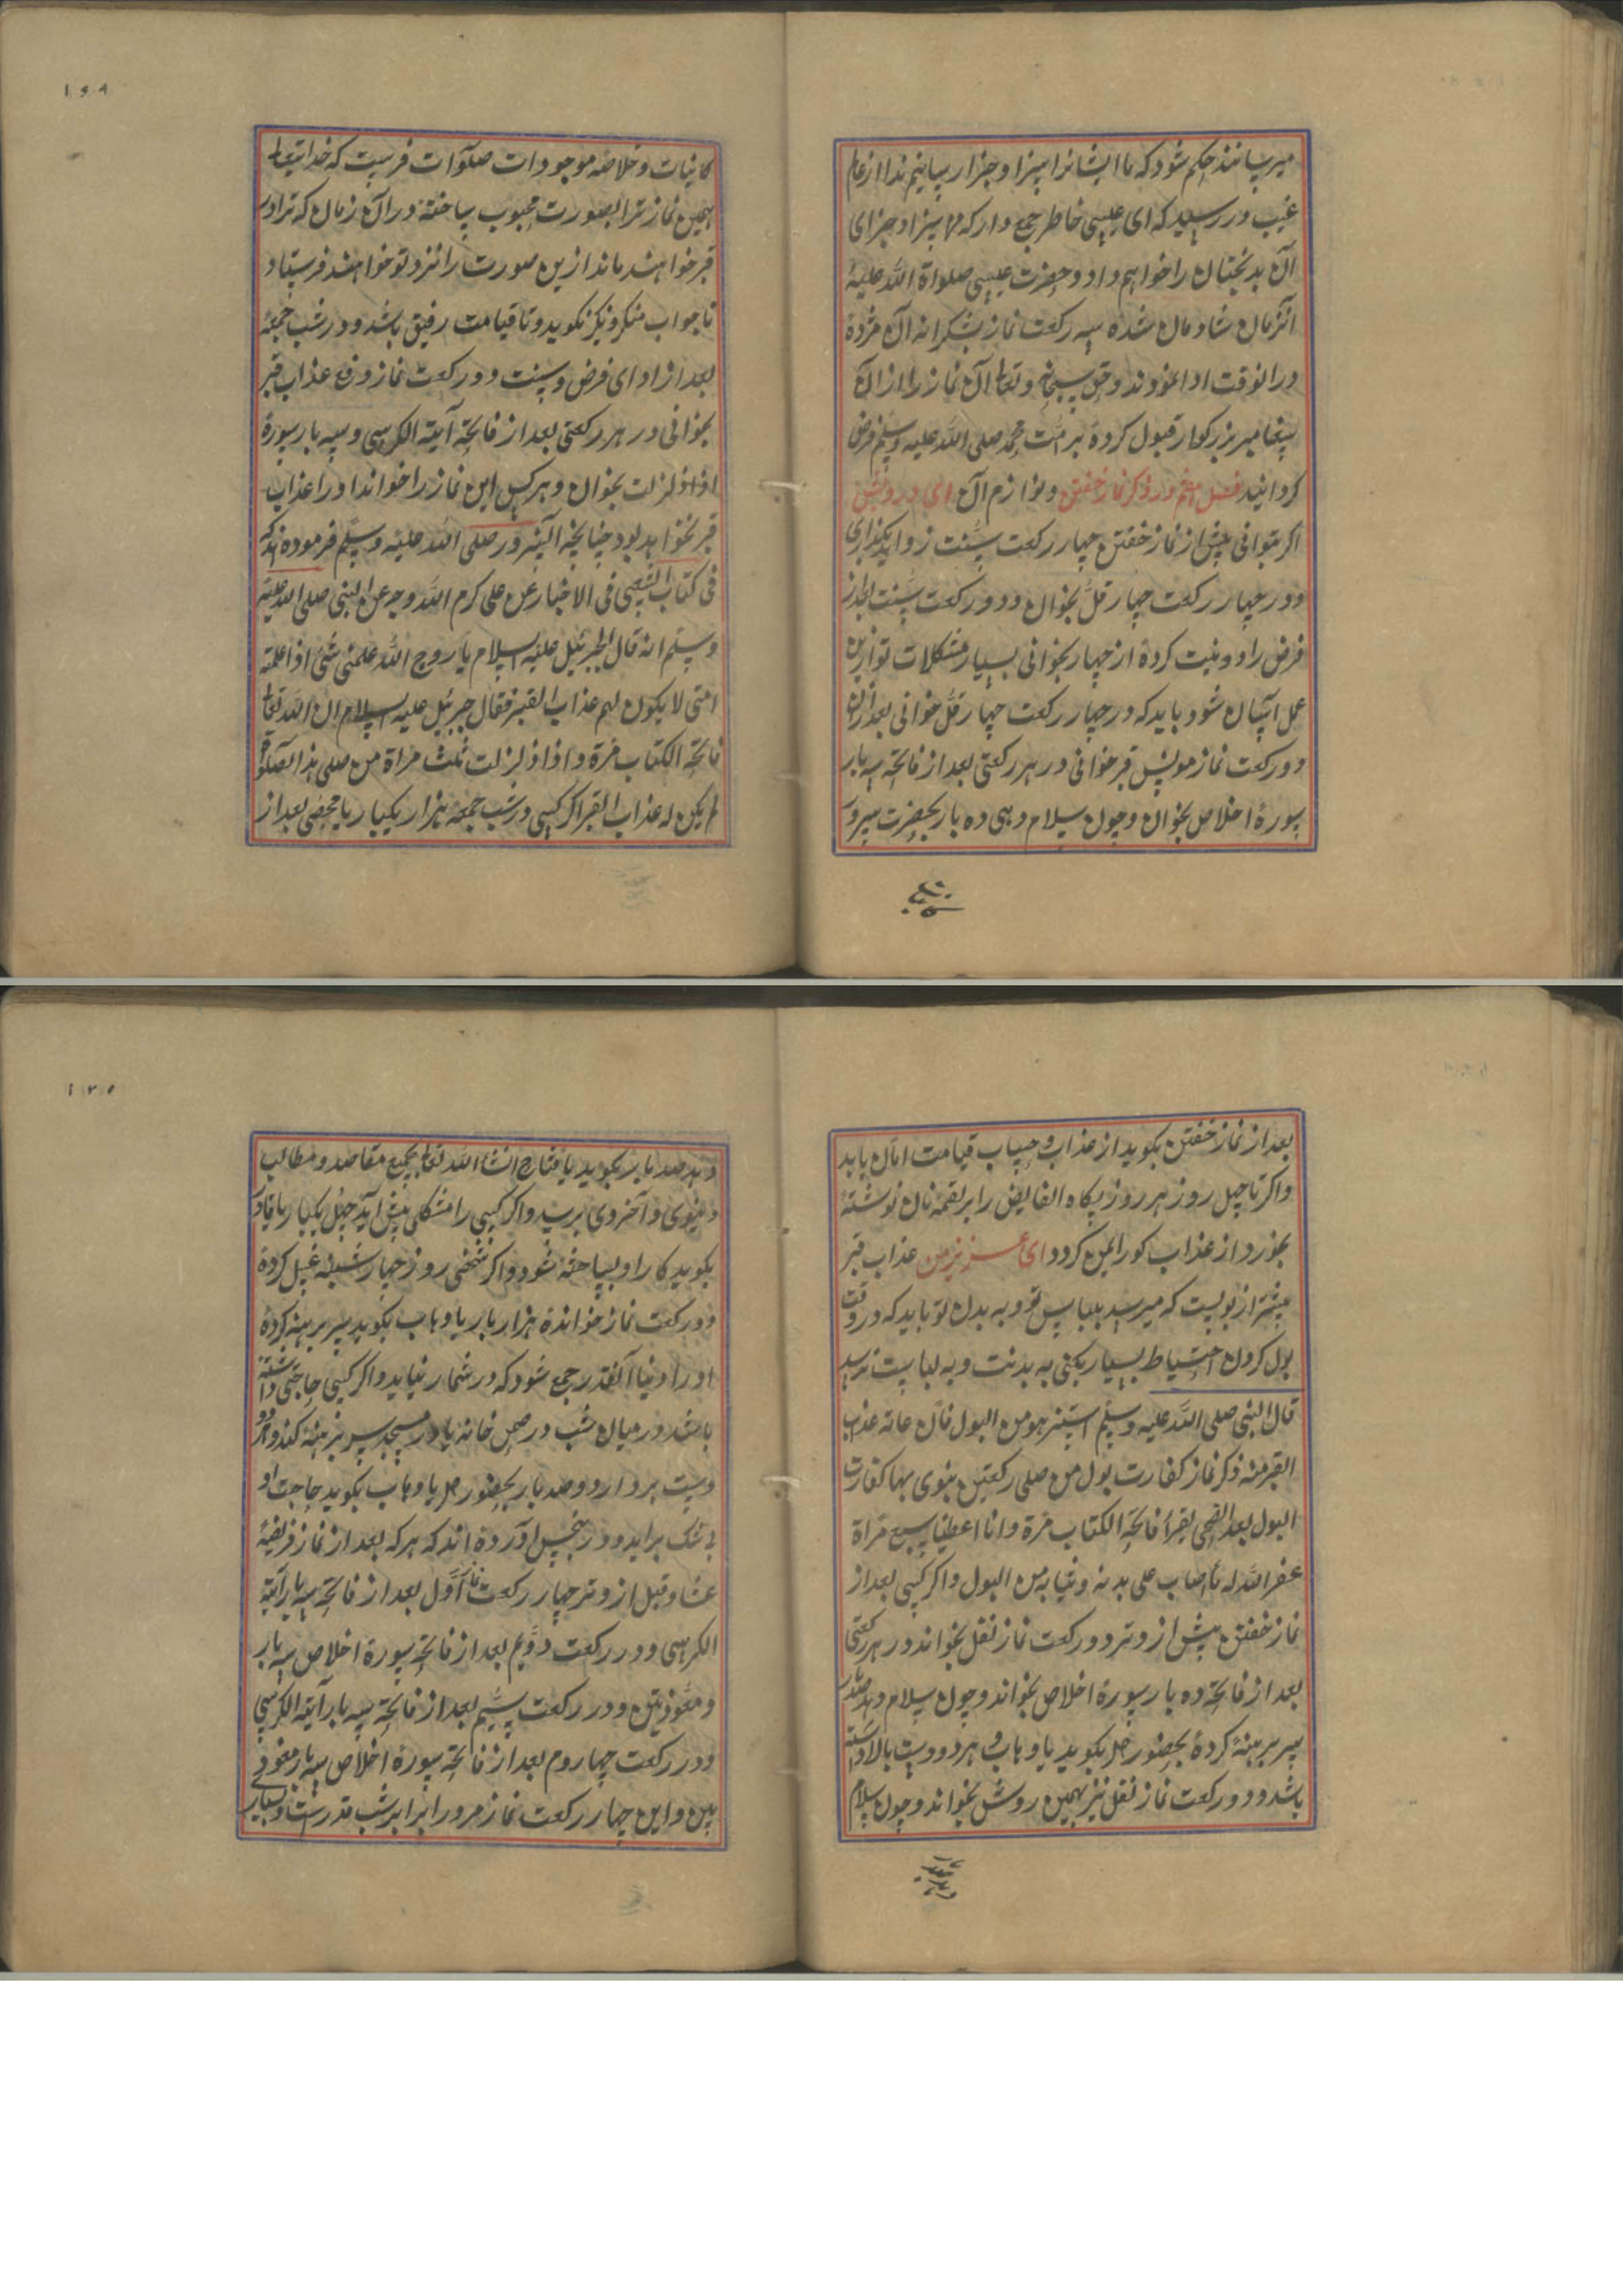 میرسانند حکم شود که ما ایشانرا سزا و جزا رسانیم ندا از عالم
غیب در رسید که ای عیسی خاطر جمع دار که ما سزا و جزای
آن بدبختان را خواهم داد و حضرت عیسی صلواة الله علیه
آنزمان شادمان شده سه رکعت نماز شکرانه آن مژده
در انوقت ادا نمودند و حق سبحانه و تعالی آن نماز را از ان
پیغامبر بزرکوار قبول کرده بر امت محمد صلی الله علیه وسلم فرض
کردانید فصل پنجم در ذکر نماز خفتن و لوازم آن ای درویش
اکر بتوانی پیش از نماز خفتن چهار رکعت سنت زواید بکذاری
و در چهار رکعت چهار قل بخوان و دو رکعت سنت بعد از
فرض را دو نیت کرده از چهار بخوانی بسیار مشکلات تو ازین
عمل آسان شود باید که در چهار رکعت چهار قل خوانی بعد ازان
دو رکعت نماز مونس قبر خوانی در هر رکعتی بعد از فاتحه سه بار
سورهٔ اخلاص بخوان و چون سلام دهی ده بار بحضرت سرور
۱۶۹
کاینات و خلاصه موجودات صلوات فرست که خدایتعالی
همین نماز ترا بصورت محبوب ساخته در آن زمان که ترا در
قبر خواهند ماند ازین صورت را نزد تو خواهند فرستاد
تا جواب منکر و نکیر نکوید و تا قیامت رفیق باشد و در شب جمعه
بعد از ادای فرض و سنت دو رکعت نماز دفع عذاب قبر
بخوانی در هر رکعتی بعد از فاتحه آیة الکرسی و سه بار سورهٔ
اذا زلزلت بخوان و هر کس این نماز را خواند او را عذاب
قبر نخواهد بود چنانچه آنسرور صلی الله علیه وسلم فرموده اند که
فی کتاب فی الاخبار عن علی کرم الله وجه عن النبی صلی الله علیه
وسلم انه قال لجبرئیل علیه السلام یا روح الله علمنی شئ اذا علمته
امتی لا یکون لهم عذاب القبر فقال جبرئیل علیه السلام ان الله تعالی
فاتحة الکتاب مرة و اذا زلزلت ثلث مراة من صلی هذا الصلوة
لم یکن له عذاب القبر اکر کسی در شب جمعه هزار یکبار یا محصی بعد از
بعد از نماز خفتن بکوید از عذاب و حساب قیامت امان یابد
و اکر تا چهل روز هر روز پکاه القابض را بر لقمه نان نوشته
بخورد از عذاب کور ایمن کردد ای عزیز من عذاب قبر
بیشتر از بولیست که میرسد بلباس تو و به بدن تو باید که در وقت
بول کردن احتیاط بسیار بکنی به بدنت و به لباست نرسد
قال النبی صلی الله علیه وسلم استنزهو من البول فان عامة عذاب
القبر منه ذکر نماز کفارت بول من صلی رکعتین ینوی بها کفارت
البول بعد الضحی یقرأ فاتحة الکتاب مرة و انا اعطینا سبع مراة
غفر الله له ما صاب علی بدنه و ثیابه من البول و اکر کسی بعد از
نماز خفتن پیش از وتر دو رکعت نماز نفل بخواند در هر رکعتی
بعد از فاتحه ده بار سورهٔ اخلاص بخواند و چون سلام دهد صد بار
سر برهنه کرده بحضور دل بکوید یا وهاب و هر دو دست بالا داشته
باشد و دو رکعت نماز نفل نیز بهمین روش بخواند و چون سلام
۱۷۰
دهد صد بار بکوید یا فتاح انشاء الله تعالی بجمیع مقاصد و مطالب
دنیوی و آخروی برسد و اکر کسی را مشکلی پیش آید چهل یکبار یا قادر
بکوید کار او ساخته شود و اکر شخصی روز چهار شنبه غسل کرده
دو رکعت نماز خوانده هزار بار یا وهاب بکوید سر برهنه کرده
او را دنیا آنقدر جمع شود که در شمار نیاید و اکر کسی حاجتی داشته
باشد در میان شب در صحن خانه یا در مسجد سر برهنه کند و هر دو
دست بردارد و صد بار بحضور دل یا وهاب بکوید حاجت او
بی شک براید و در آورده اند که هر که بعد از نماز فریضهٔ
عشا و قبل از وتر چهار رکعت نماز اول بعد از فاتحه سه بار آیة
الکرسی و در رکعت دویم بعد از فاتحه سورهٔ اخلاص سه بار
و معوذتین و در رکعت سیم بعد از فاتحه سه بار آیة الکرسی
و در رکعت چهاروم بعد از فاتحه سورهٔ اخلاص سه بار معوذ
تین و این چهار رکعت نماز مر ورا برابر شب قدرست و بسیار